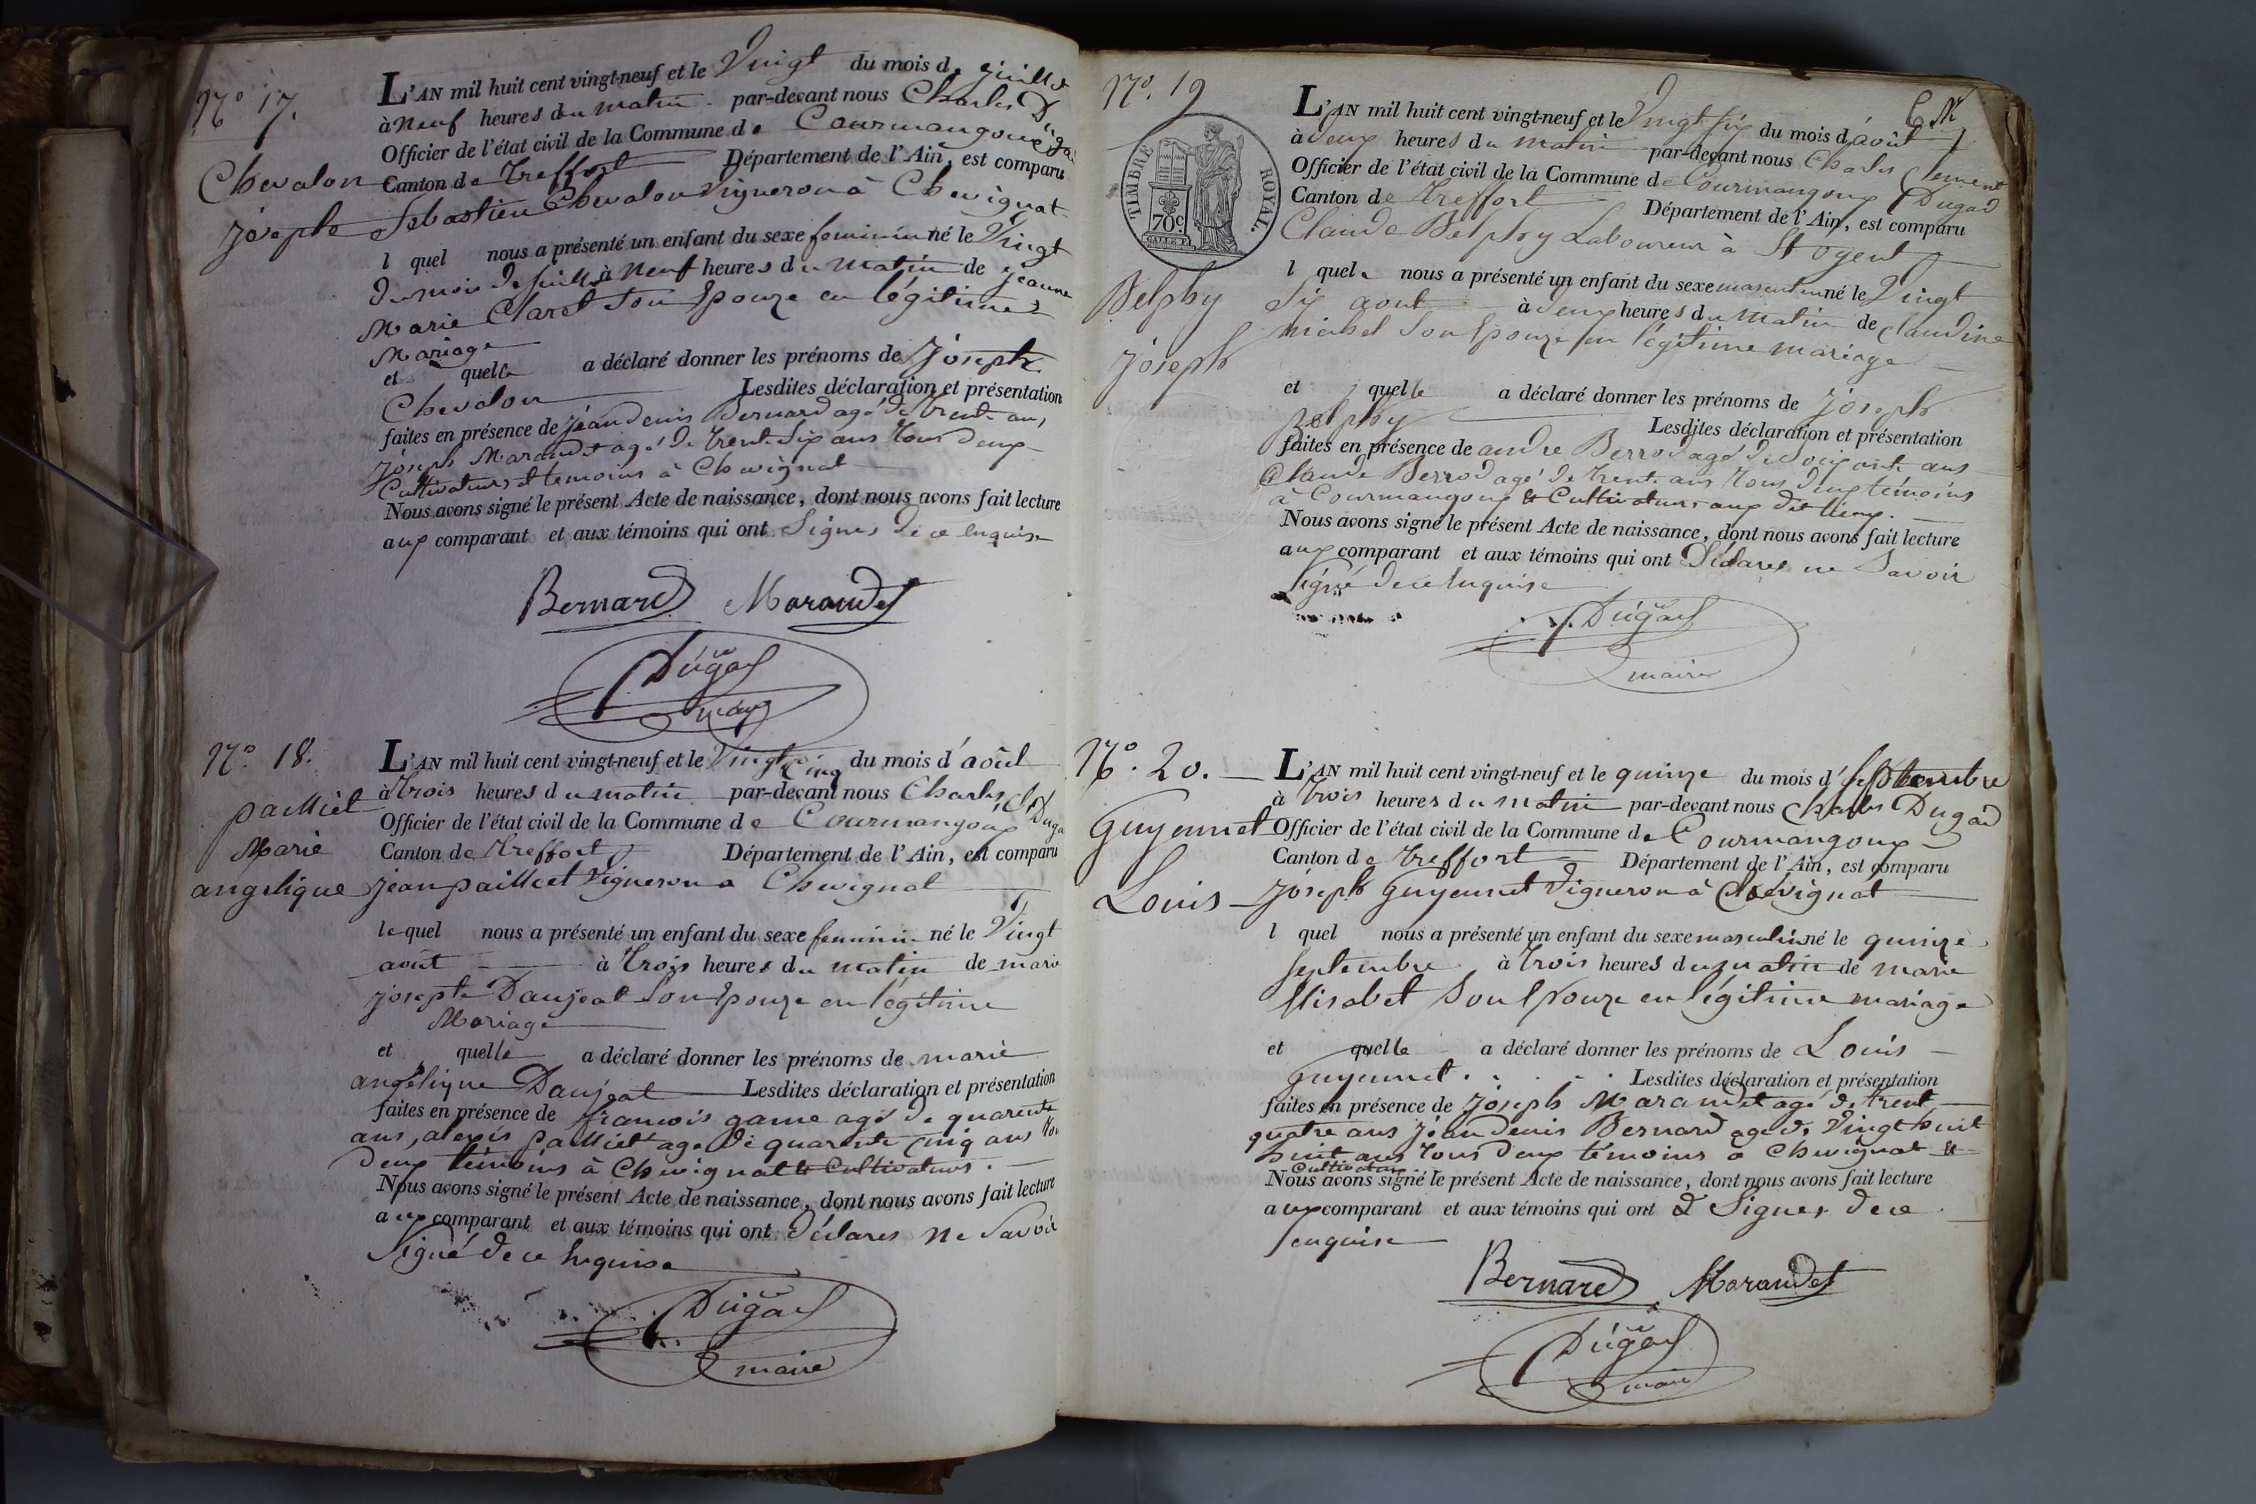 N.o 17.
Chevalon
joseph
L'AN mil huit cent vingt-neuf et le Vingt du mois de juillet
à Neuf heures du matin par-devant nous Charles Dugad
Officier de l'état civil de la Commune de Courmangoux
Canton de Treffort Département de l'Ain, est comparu
Sebastien Chevalon Vigneron à Chevignat
l quel nous a présenté un enfant du sexe feminin né le Vingt
du mois de juillet à Neuf heures du Matin de jeanne
Marie Claret Son Epouze en légitime
Mariage
et quelle a déclaré donner les prénoms de Joseph
Chevalon Lesdites déclaration et présentation
faites en présence de jean denis Bernard agé de trente ans
joseph Marandet agé de trente Six ans tous deux
Cultivateurs et temoins à Chevignat
Nous avons signé le présent Acte de naissance, dont nous avons fait lecture
aux comparant et aux témoins qui ont Signes de ce enquise
Bernard Marandet
Dugad
maire
N.o 18.
pailliet
Marie
angelique
L'AN mil huit cent vingt-neuf et le Vingt cinq du mois d'août
à trois heures du matin par-devant nous Charles Dugad
Officier de l'état civil de la Commune de Courmangoux
Canton de Treffort Département de l'Ain, est comparu
jean pailliet Vigneron à Chevignat
le quel nous a présenté un enfant du sexe feminin né le Vingt
août à trois heures du matin de marie
josephe Daujeat Son Epouze en légitime
Mariage
et quelle a déclaré donner les prénoms de marie
angélique Daujeat Lesdites déclaration et présentation
faites en présence de francois game agé de quarente
ans, alexis pailliet agé de quarente cinq ans tou
deux témoins à Chevignat et Cultivateurs.
Nous avons signé le présent Acte de naissance, dont nous avons fait lecture
aux comparant et aux témoins qui ont Déclares ne Savoir
Signé de ce enquise
Dugad
maire
N.o 19
TIMBRE ROYAL
70c
Belphy
joseph
L'AN mil huit cent vingt-neuf et le Vingt six du mois d'août
à deux heures du matin par-devant nous Charles Clement
Officier de l'état civil de la Commune de Courmangoux Dugad
Canton de Treffort Département de l'Ain, est comparu
Claude Belphy Laboureur à St ogent
l quel nous a présenté un enfant du sexe masculin né le Vingt
Six aout à deux heures du Matin de Claudine
michel Son Epouze en légitime mariage
et quelle a déclaré donner les prénoms de joseph
Belphy Lesdites déclaration et présentation
faites en présence de andre Berrod agé de Soixante ans
Claude Berrod agé de trente ans tous deux témoins
à Courmangoux et Cultivateurs aux dit lieux.
Nous avons signé le présent Acte de naissance, dont nous avons fait lecture
aux comparant et aux témoins qui ont Déclares ne Savoir
Signé de ce enquise
Dugad
maire
N.o 20.
Guyennet
Louis
L'AN mil huit cent vingt-neuf et le quinze du mois d' Septembre
à trois heures du matin par-devant nous Charles Dugad
Officier de l'état civil de la Commune de Courmangoux
Canton de Treffort Département de l'Ain, est comparu
joseph Guyennet Vigneron à Chevignat
l quel nous a présenté un enfant du sexe masculin né le quinze
Septembre à trois heures du matin de marie
Elisabet Son Epouze en légitime mariage
et quelle a déclaré donner les prénoms de Louis
Guyennet Lesdites déclaration et présentation
faites en présence de joseph Marandet agé de trent
quatre ans jean denis Bernard agé de Vingt huit
huit ans tous deux témoins à Chevignat et
Cultivateurs
Nous avons signé le présent Acte de naissance, dont nous avons fait lecture
aux comparant et aux témoins qui ont Signes de ce
enquise
Bernard Marandet
Dugad
maire